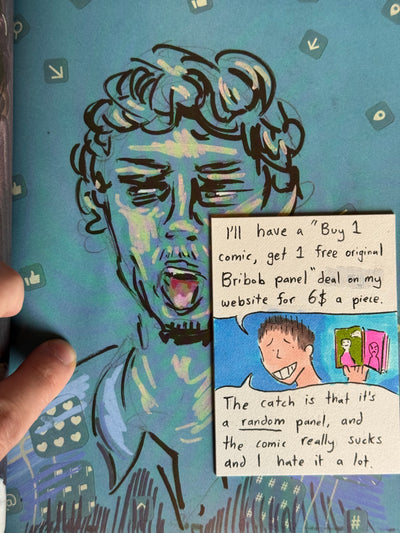 I'll have a "Buy 1
comic, get 1 free original
Bribob panel" deal on my
website for 6$ a piece.
The catch is that it's
a random panel, and
the comic really sucks
and I hate it a lot.